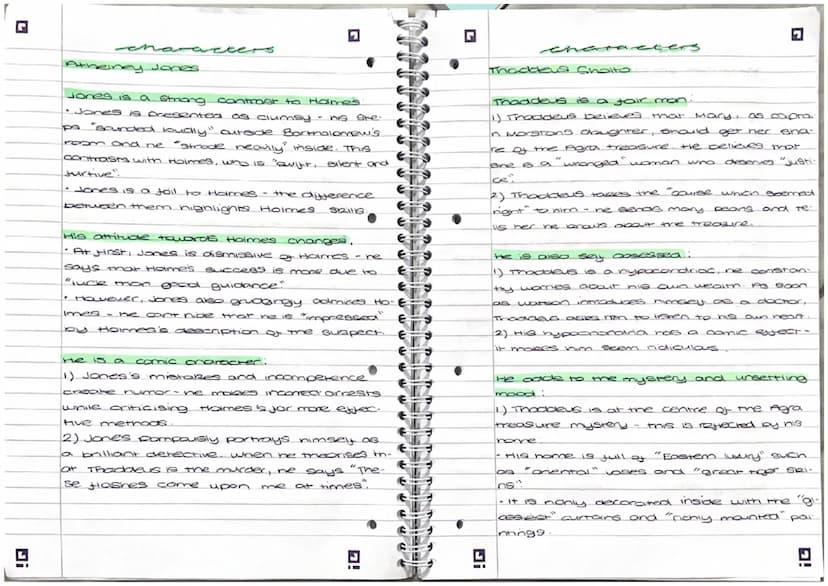 characters
Athelney Jones
Jones is a strong contrast to Holmes
• Jones is presented as clumsy - his ste-
ps "sounded loudly" outside Bartholomew's
room and he "strode heavily" inside. This
contrasts with Holmes, who is "swift, silent and
furtive".
• Jones is a foil to Holmes - the difference
between them highlights Holmes skills
His attitude towards Holmes changes.
• At first, Jones is dismissive of Holmes - he
says that Holme's success is more due to
"luck than good guidance"
• However, Jones also grudgingly admires Ho-
lmes - he can't hide that he is "impressed"
by Holmes's description of the suspect.
He is a comic character:
1) Jones's mistakes and incompetence
create humor - he makes incorrect arrests
while criticising Holmes's far more effec-
tive methods.
2) Jones pompously portrays himself as
a brilliant detective. when he theorises th-
at Thaddeus is the murder, he says "The-
se flashes come upon me at times".
characters
Thaddeus Sholto
Thaddeus is a fair man:
1) Thaddeus believes that Mary, as captai-
n Morstons daughter, should get her sha-
re of the Agra treasure. He believes that
she is a "wronged" woman who deserves "justi-
ce".
2) Thaddeus takes the "course which seemed
right" to him - he sends mary pearls and te-
lls her he knows about the treasure.
He is also self obsessed:
1) Thaddeus is a hypocondriac, he constan-
tly worries about his own health. As soon
as watson introduces himself as a doctor,
Thaddeus asks him to listen to his own heart.
2) His hypochondria has a comic effect -
it makes him seem ridiculous.
He adds to the mystery and unsettling
mood:
1) Thaddeus is at the centre of the Agra
treasure mystery - this is reflected by his
home
• His home is full of "Eastern luxury" such
as "oriental" vases and "great tiger ski-
ns".
• It is richly decorated inside with the "gl-
ossiest" curtains and "richly mounted" pai-
ntings.